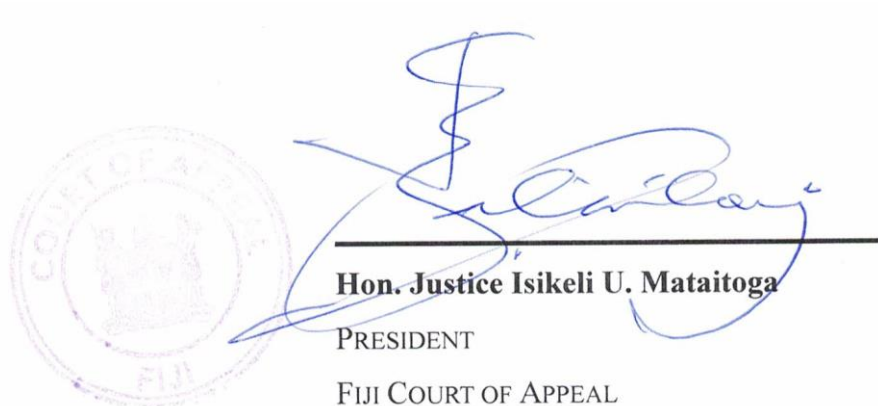 COURT OF APPEAL
FIJI
Hon. Justice Isikeli U. Mataitoga
PRESIDENT
FIJI COURT OF APPEAL